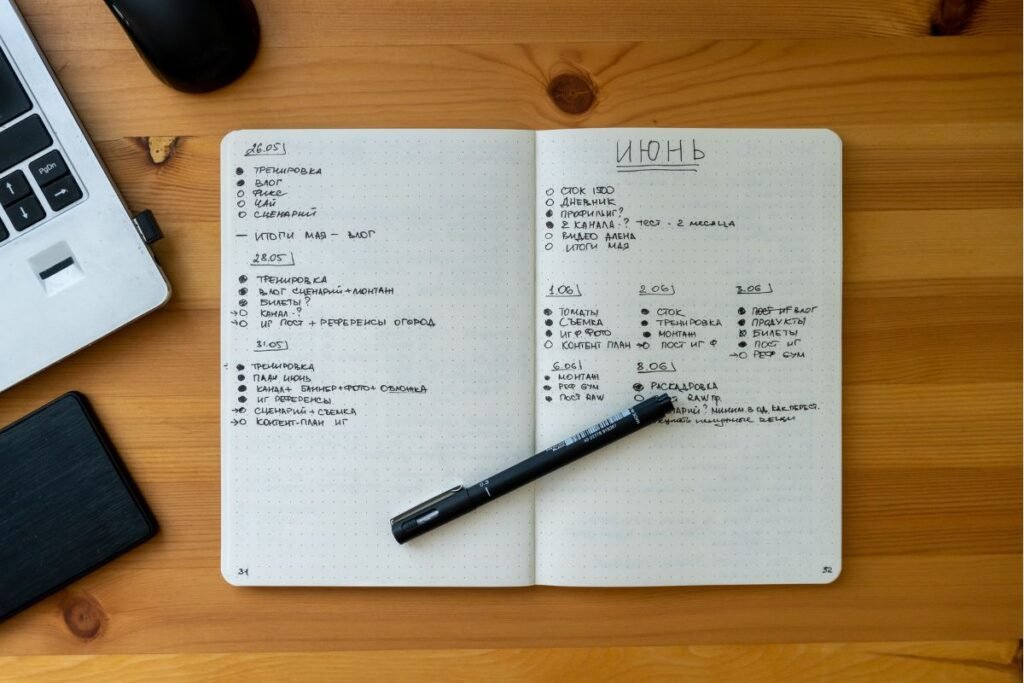 PgDn
26.05
ТРЕНИРОВКА
ВЛОГ
ФИКС
ЧАЙ
СЦЕНАРИЙ
— ИТОГИ МАЯ – ВЛОГ
28.05
ТРЕНИРОВКА
ВЛОГ СЦЕНАРИЙ+МОНТАЖ
БИЛЕТЫ?
КАНАЛ-?
ИГ ПОСТ + РЕФЕРЕНСЫ ОГОРОД
31.05
ТРЕНИРОВКА
ПЛАН ИЮНЬ
КАНАЛ+ БАННЕР+ФОТО+ ОБЛОЖКА
ИГ РЕФЕРЕНСЫ
СЦЕНАРИЙ+СЪЕМКА
КОНТЕНТ-ПЛАН ИГ
31
ИЮНЬ
СТОК 1500
ДНЕВНИК
ПРОФИЛЬ ИГ?
2 КАНАЛА-? ТЕСТ - 2 МЕСЯЦА
ВИДЕО АЛЕНА
ИТОГИ МАЯ
1.06
ТОМАТЫ
СЪЕМКА
ИГ Ф ФОТО
КОНТЕНТ ПЛАН
2.06
СТОК
ТРЕНИРОВКА
МОНТАЖ
ПОСТ ИГ Ф
3.06
ПОСТ ИГ ВЛОГ
ПРОДУКТЫ
БИЛЕТЫ
ПОСТ ИГ
РЕФ GYM
6.06
МОНТАЖ
РЕФ GYM
ПОСТ RAW
8.06
РАСКАДРОВКА
RAW
МИНИМ. В ОД. КАК ПЕРЕСТ.
НЕНУЖНЫЕ ВЕЩИ
0.5
32